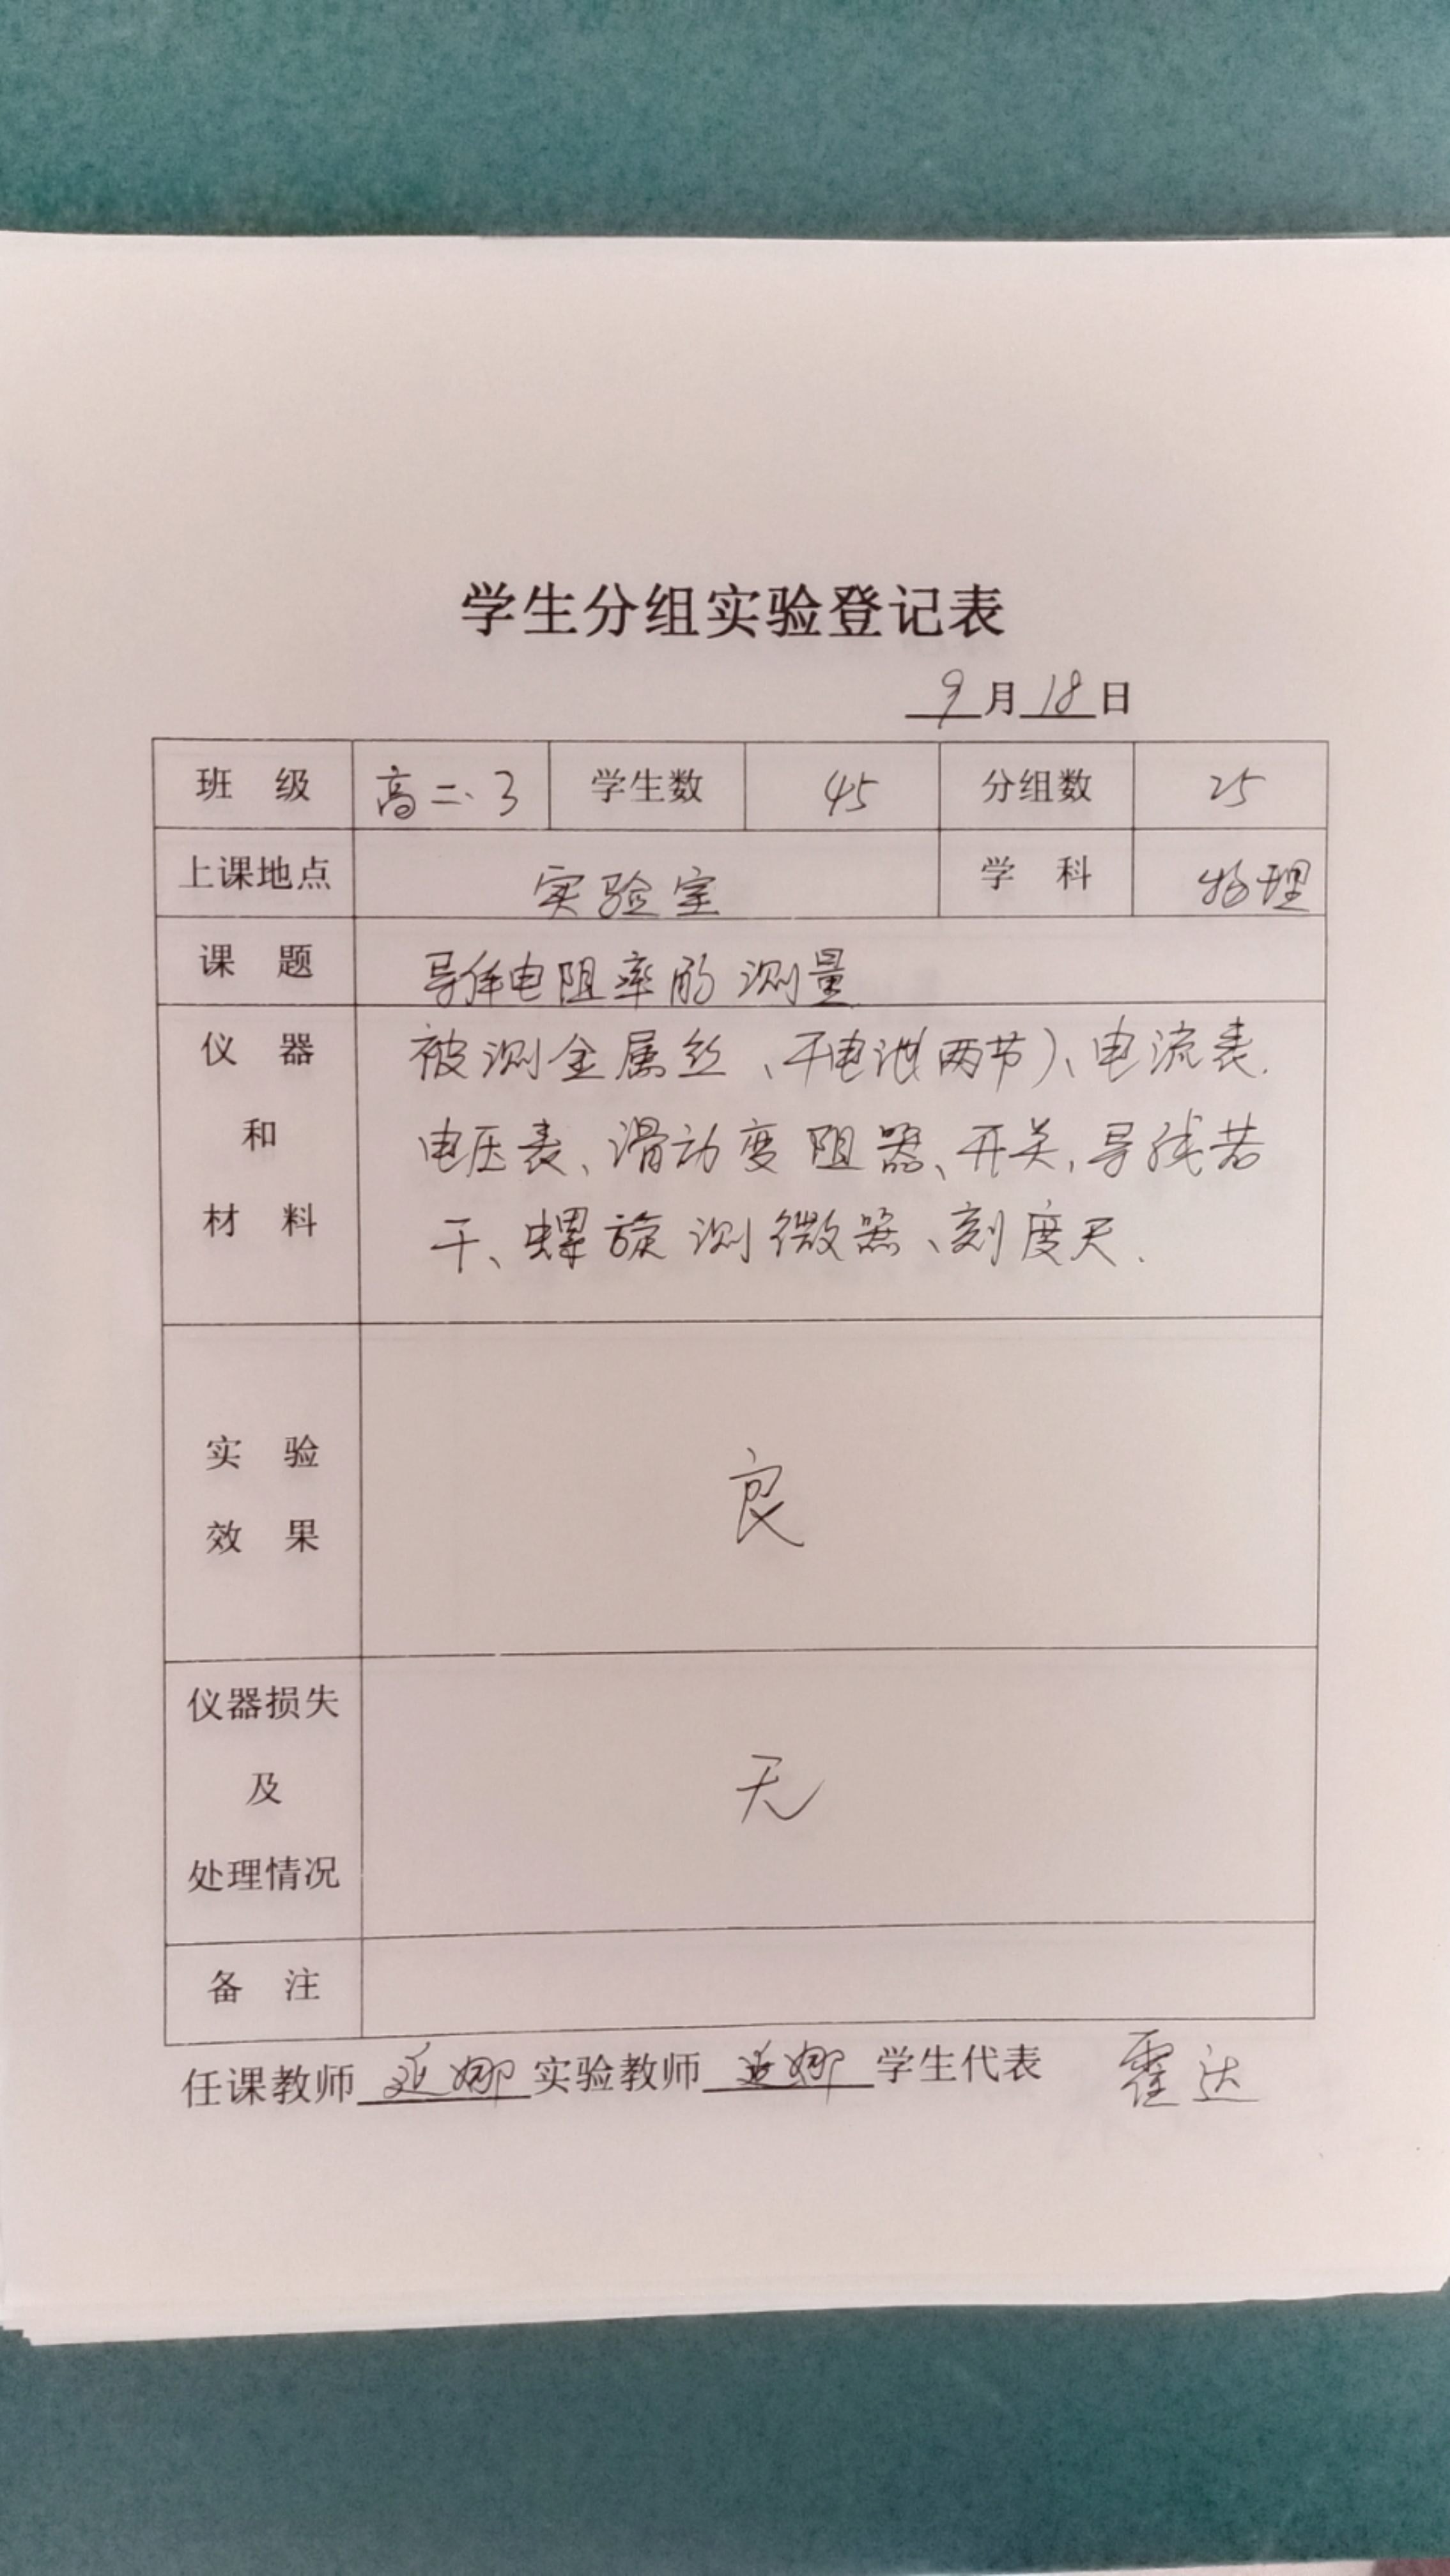 学生分组实验登记表
9月18日
班 级 高二、3 学生数 45 分组数 25
上课地点 实验室 学 科 物理
课 题 导体电阻率的测量
仪 器 被测金属丝、干电池(两节)、电流表.
和 电压表、滑动变阻器、开关,导线若
材 料 干、螺旋测微器、刻度尺.
实 验
效 果
良
仪器损失
及
处理情况
无
备 注
任课教师 延娜 实验教师 延娜 学生代表 霍达